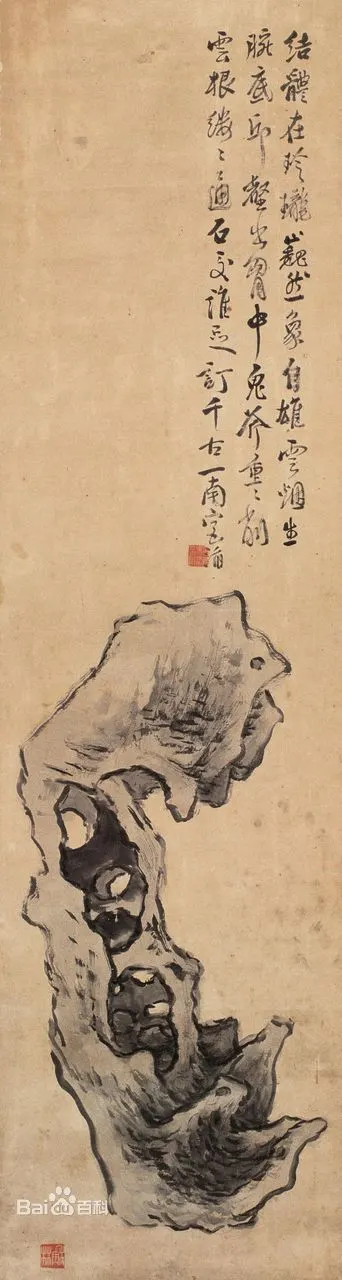 結體在玲瓏巍然象自雄雲烟生
腕底邱壑出胷中鬼斧重〻削
雲根縷〻通石交誰足訂千古一南宮
Bai du 百科